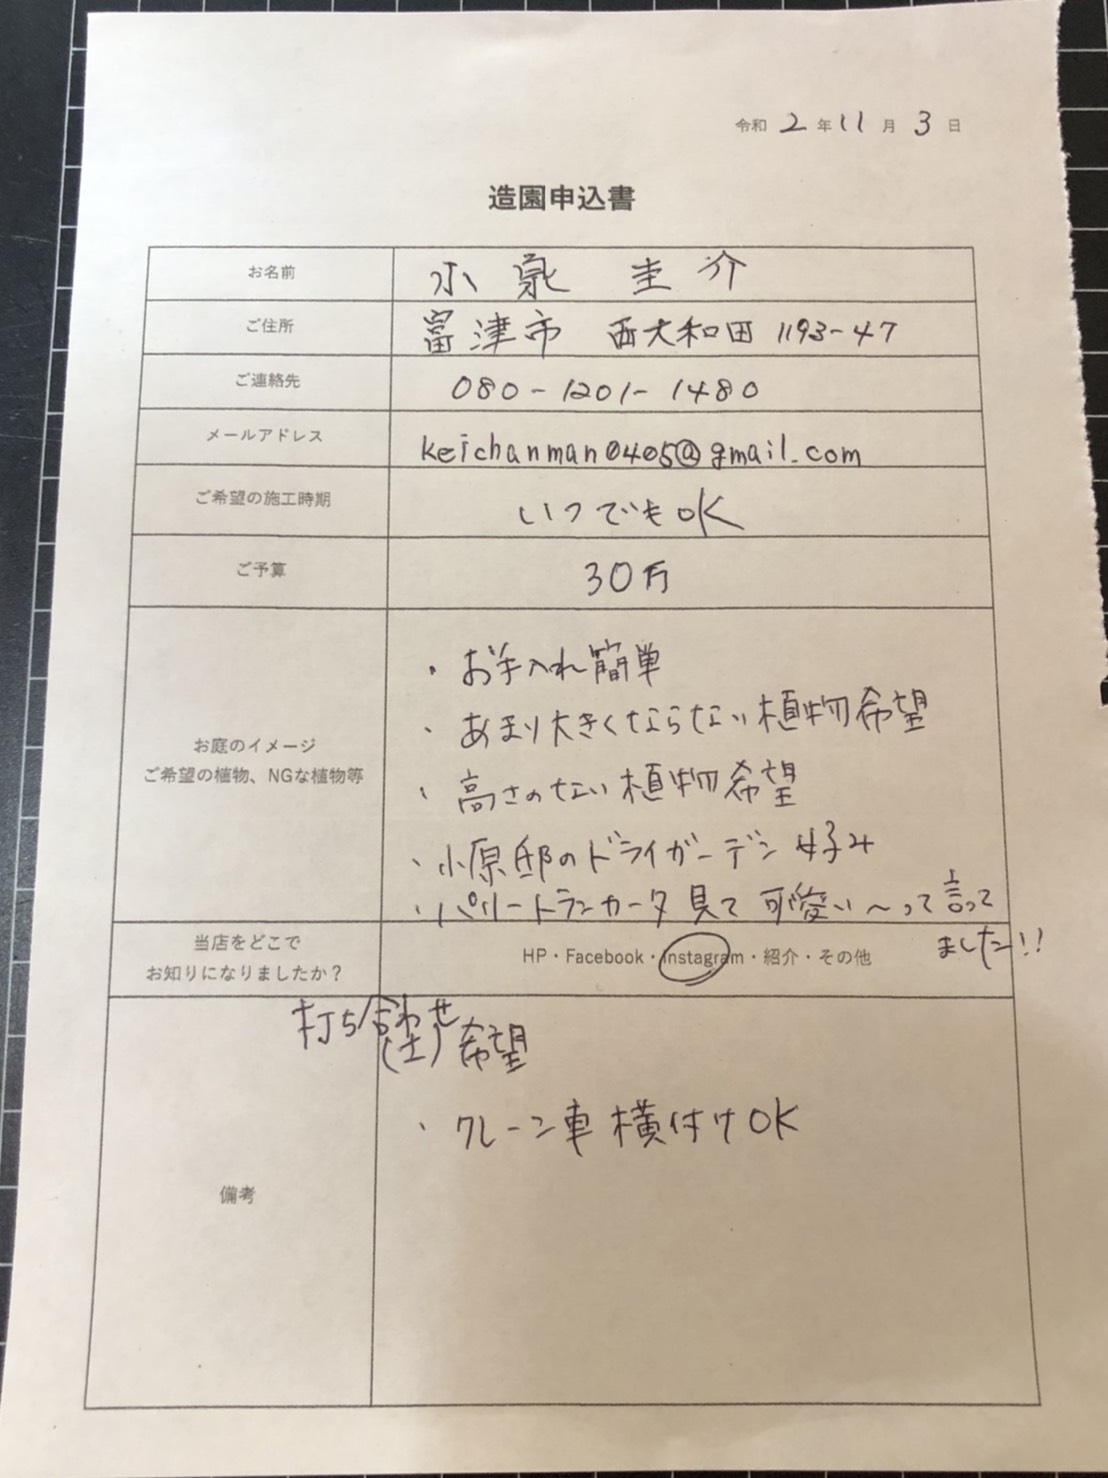 令和 2 年 11 月 3 日
造園申込書
お名前 小泉 圭介
ご住所 富津市 西大和田 1193-47
ご連絡先 080-1201-1480
メールアドレス keichanman0405@gmail.com
ご希望の施工時期 いつでもOK
ご予算 30万
お庭のイメージ
ご希望の植物、NGな植物等
・お手入れ簡単
・あまり大きくならない植物希望
・高さのない植物希望
・小原邸のドライガーデン好み
・パリートランカータ見て可愛い～って言って
ました!!
当店をどこで
お知りになりましたか？
HP・Facebook・Instagram・紹介・その他
打ち合わせ
(土)希望
・クレーン車横付けOK
備考